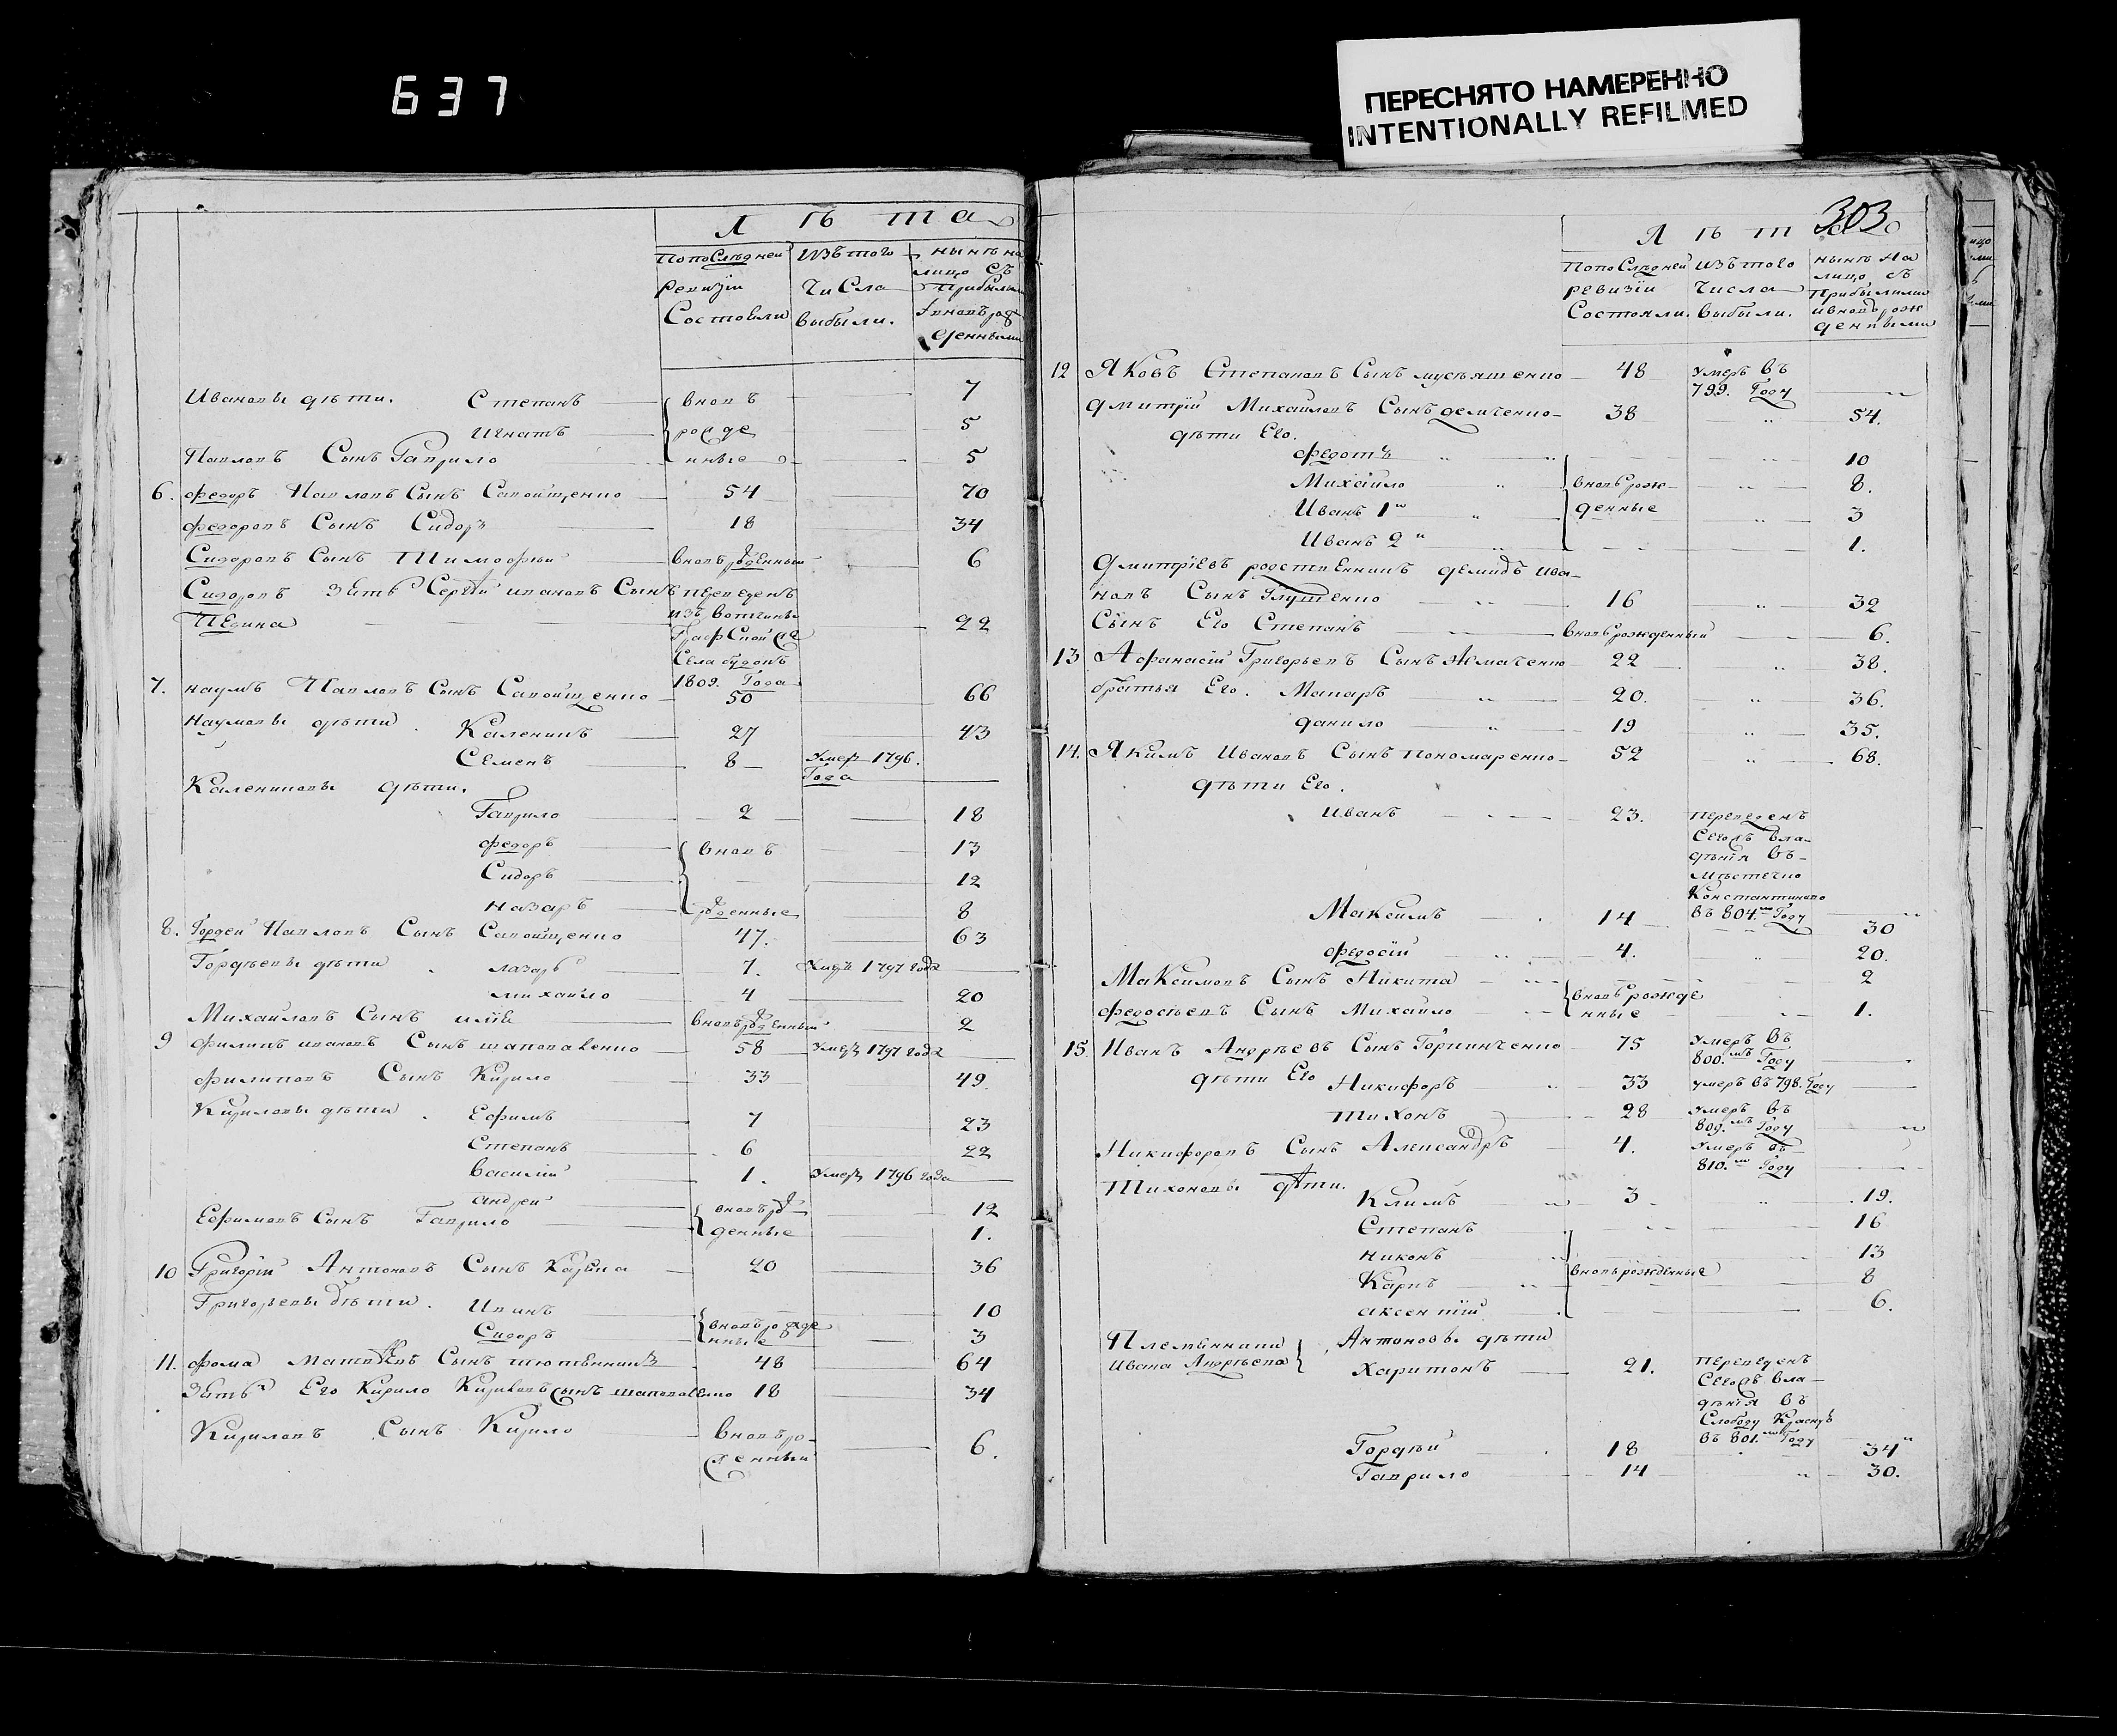 637
ПЕРЕСНЯТО НАМЕРЕННО
INTENTIONALLY REFILMED
Лѣта
попоСлѣдней ревизіи Состояли
изътого чиСла выбыли.
нынѣ на лицо съ прибылыми ивновьрожденными
Ивановы дѣти. Степанъ вновь 7
Игнатъ рожде 5
Павловъ Сынъ Гаврило нные 5
6. Федоръ Павловъ Сынъ Сапойщенко 54 70
Федоровъ Сынъ Сидоръ 18 34
Сидоровъ Сынъ Тимофей вновьрожденный 6
Сидоровъ Зять Сергѣй ивановъ Сынъ переведенъ
изъ вотчины 22
Села
1809. Года
7. наумъ Павловъ Сынъ Сапойщенко 50 66
Наумовы дѣти. Каленикъ 27 43
Семенъ 8 Умер 1796. Года
Калениковы дѣти.
Гаврило 2 18
Федоръ вновь 13
Сидоръ 12
Назаръ рожденные 8
8. Гордей Павловъ Сынъ Сапойщенко 47. 63
Гордѣевы дѣти. лазарь 7. Умеръ 1797 года
михайло 4 20
Михайловъ Сынъ илія вновьрожденный 2
9 филипъ ивановъ Сынъ шаповаленко 58 Умеръ 1797 года
филиповъ Сынъ Кирило 33 49.
Кириловы дѣти. Ефимъ 7 23
Степанъ 6 22
василій 1. Умеръ 1796 года
андрей вновьрож 12
Ефимовъ Сынъ Гаврило денные 1.
10 Григорій Антоновъ Сынъ 20 36
Григорьевы дѣти. Иванъ 10
Сидоръ вновьрожденные 3
11. фома Матвѣевъ Сынъ тютюнникъ 48 64
Зять Его Кирило Кириловъ Сынъ шаповаленко 18 34
Кириловъ Сынъ Кирило вновьрожденный 6.
303
Лѣта
попоСлѣдней ревизіи Состояли.
изътого числа выбыли.
нынѣ на лицо съ прибылыми ивновьрожденными
12 Яковъ Степановъ Сынъ 48 Умеръ въ 799. Году
Дмитрій Михайловъ Сынъ демченко 38 54.
дѣти Его.
Федотъ 10
Михайло вновьрож 8.
Иванъ 1й денные 3
Иванъ 2й 1.
Дмитріевъ родственникъ демидъ ива-
новъ Сынъ Глущенко 16 32
Сынъ Его Степанъ вновьрожденный 6.
13 Афанасій Григорьевъ Сынъ 22 38.
братья Его. Макаръ 20. 36.
данило 19 35.
14. Якимъ Ивановъ Сынъ пономаренко 52 68.
дѣти Его.
Иванъ 23. переведенъ
Сегожъ вла-
дѣнія въ
мѣстечко
Константиново
въ 804.мъ Году
Максимъ 14 30
Федосій 4. 20.
Максимовъ Сынъ Никита вновьрожде 2
Федосьевъ Сынъ Михайло нные 1.
15. Иванъ Андрѣевъ Сынъ 75 Умеръ въ 800.мъ Году
дѣти Его Никифоръ 33 умеръ въ 798. Году
Тихонъ 28 Умеръ въ 809.мъ Году
Никифоровъ Сынъ Александръ 4. Умеръ въ 810.мъ Году
Тихоновы дѣти.
Климъ 3 19.
Степанъ 16
никонъ 13
Карпъ вновьрожденные 8
аксентій 6.
Племянники
Ивана Андрѣева
Антоновы дѣти
Харитонъ 21. переведенъ
Сегожъ вла-
дѣнія въ
Слободу Красную
въ 801.мъ Году
Гордѣй 18 34
Гаврило 14 30.